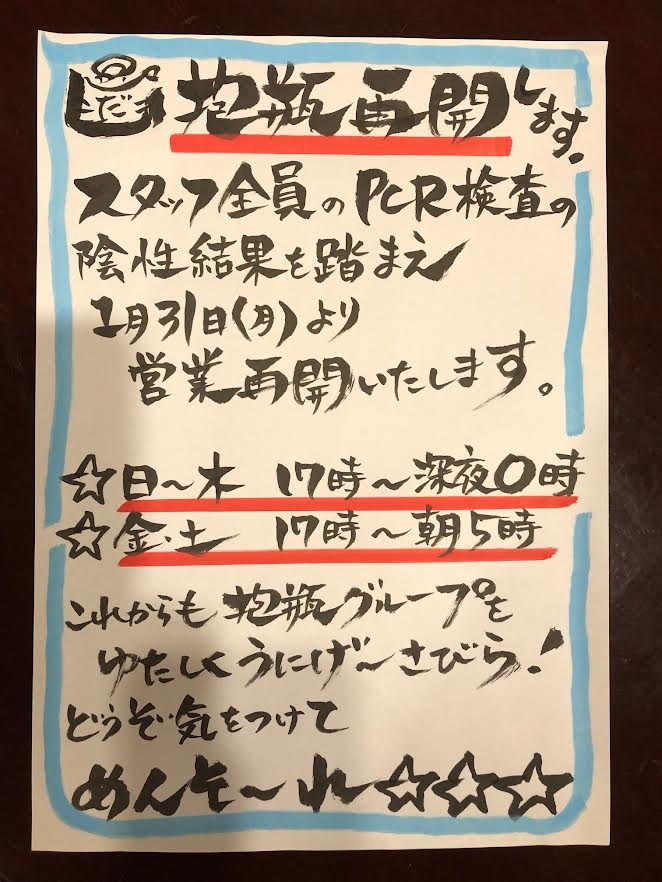 だ 抱瓶再開します。
スタッフ全員のPCR検査の
陰性結果を踏まえ
1月31日(月)より
営業再開いたします。
☆日〜木 17時〜深夜0時
☆金・土 17時〜朝5時
これからも抱瓶グループを
ゆたしくうにげ〜さびら!
どうぞ気をつけて
めんそ〜れ☆☆☆